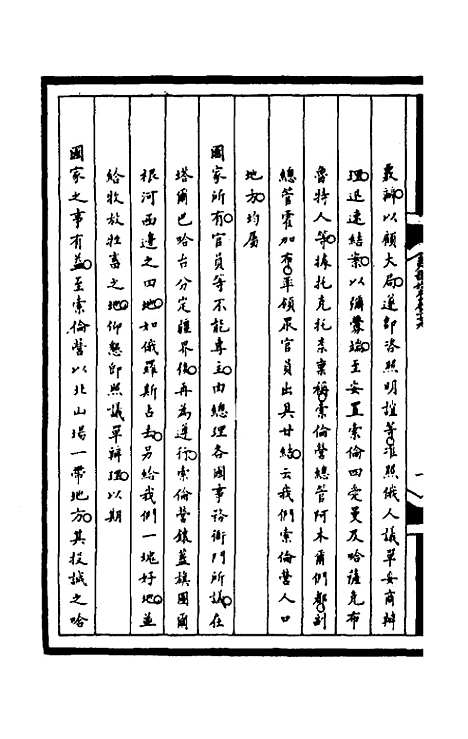 義辦以顧大局遵即咨照明禮等准照俄人議單妥商辦
理迅速結案以彌釁端至妥置索倫四愛曼及哈薩克布
魯特人等據托克托柰稟稱索倫營總管阿木爾們都到
總管霍加布平領眾官員出具甘結云我們索倫營人口
地方均屬
國家所有官員等不能專主由總理各國事務衙門所議在
塔爾巴哈台分定疆界後再為遵行索倫營鑲蓋旗圖爾
根河西邊之四地如俄羅斯占去另給我們一塊好地並
給牧放牲畜之地仰懇即照議單辦理以期
國家之事有益至索倫營以北山場一帶地方其投誠之哈